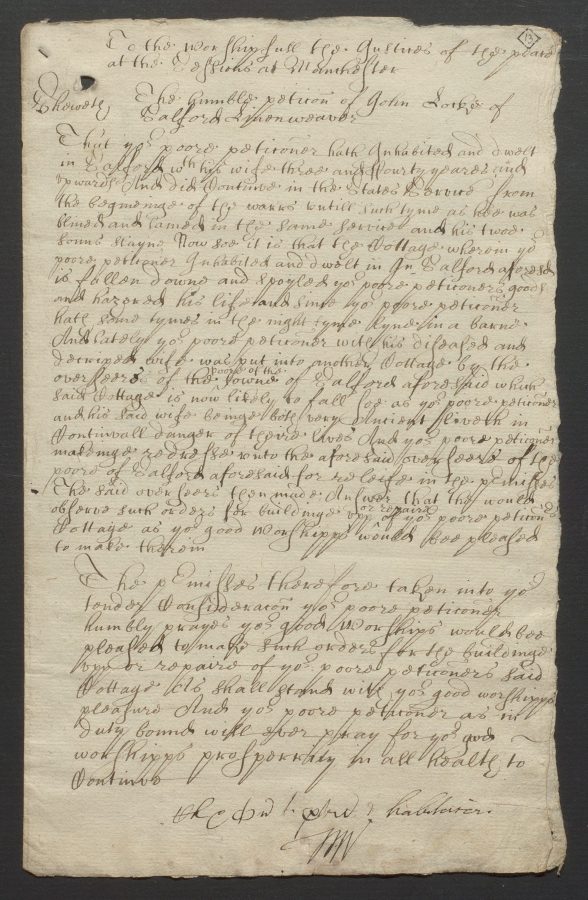 13
To the worshipfull the Justices of the peace
at the Sessions at Manchester
The humble peticon of John Locke of
Sheweth Salford Linenweaver
That yor poore peticoner hath Inhabited and dwelt
in Salford wth his wife three and ffourty yeares and
vpwards And did Continue in the States Service from
the begineinge of the warrs vntill such tyme as hee was
blined and lamed in the same service and his twoe
sonns slayne Now soe it is that the Cottage wherein yor
poore peticoner Inhabited and dwelt in In Salford aforesd
is fallen downe and spoyled yor poore peticoners goods
and hazered his life and since yor poore peticoner
hath some tymes in the night tyme lyne in a barne
And lately yor poore peticoner with his diseased and
decriped wife was put into another Cottage by the
overseers of the poore of the towne of Salford aforesaid which
said Cottage is now likely to fall soe as yor poore peticoner
and his said wife beinge both very Ancient liveth in
Continuall danger of theire lives And yor poore peticoner
makinge redresse vnto the aforesaid overseers of the
poore of Salford aforesaid for releife in the pmisses
The said overseers then made Answer that the would
observe such orders for buildinge vpp or repaire of yor poore peticoners
Cottage as yor good worshipps would bee pleased
to make therein
The pmisses therefore taken into yor
tender Consideracon yor poore peticoner
humbly prayes yor good worships would bee
pleased to make such orders for the buildinge
vpp or repaire of yor poore peticoners said
Cottage As shall stand with yor good worshipps
pleasure And yor poore peticoner as in
duty bound will ever pray for yor good
worshipps prosperity in all health to
Continue